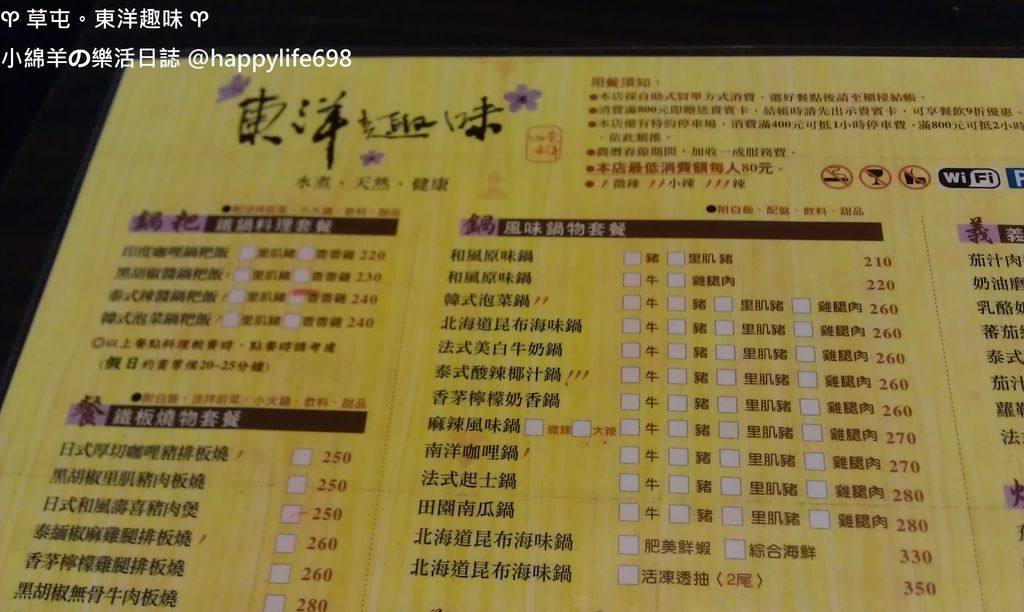 ♈ 草屯。東洋趣味 ♈
小綿羊の樂活日誌 @happylife698
東洋趣味
水煮、天然、健康
用餐須知：
●本店採自助式買單方式消費，選好餐點後請至櫃檯結帳。
●消費滿800元即贈送貴賓卡，結帳時請先出示貴賓卡，可享餐飲9折優惠。
●本店備有特約停車場，消費滿400元可抵1小時停車費，滿800元可抵2小時
，依此類推。
●農曆春節期間，加收一成服務費。
●本店最低消費額每人80元。
● 微辣 小辣 辣
WiFi
小火鍋、飲料、甜品
鍋粑 鐵鍋料理套餐
印度咖哩鍋粑飯 里肌豬 香香雞 220
黑胡椒醬鍋粑飯 里肌豬 香香雞 230
泰式辣醬鍋粑飯 里肌豬 香香雞 240
韓式泡菜鍋粑飯 里肌豬 香香雞 240
◎以上餐點料理較費時，點餐時請考慮
(假日約需等候20~25分鐘)
●附白飯、涼拌前菜、小火鍋、飲料、甜品
餐 鐵板燒物套餐
日式厚切咖哩豬排板燒 250
黑胡椒里肌豬肉板燒 250
日式和風壽喜豬肉煲 250
泰緬椒麻雞腿排板燒 260
香茅檸檬雞腿排板燒 260
黑胡椒無骨牛肉板燒 280
●附白飯、配盤、飲料、甜品
鍋 風味鍋物套餐
和風原味鍋 豬 里肌豬 210
和風原味鍋 牛 雞腿肉 220
韓式泡菜鍋 牛 豬 里肌豬 雞腿肉 260
北海道昆布海味鍋 牛 豬 里肌豬 雞腿肉 260
法式美白牛奶鍋 牛 豬 里肌豬 雞腿肉 260
泰式酸辣椰汁鍋 牛 豬 里肌豬 雞腿肉 260
香茅檸檬奶香鍋 牛 豬 里肌豬 雞腿肉 260
麻辣風味鍋 微辣 大辣 牛 豬 里肌豬 雞腿肉 270
南洋咖哩鍋 牛 豬 里肌豬 雞腿肉 270
法式起士鍋 牛 豬 里肌豬 雞腿肉 280
田園南瓜鍋 牛 豬 里肌豬 雞腿肉 280
北海道昆布海味鍋 肥美鮮蝦 綜合海鮮 330
北海道昆布海味鍋 活凍透抽〈2尾〉 350
義 義
茄汁肉
奶油磨
乳酪
蕃茄
泰式
茄汁
蘿勒
法